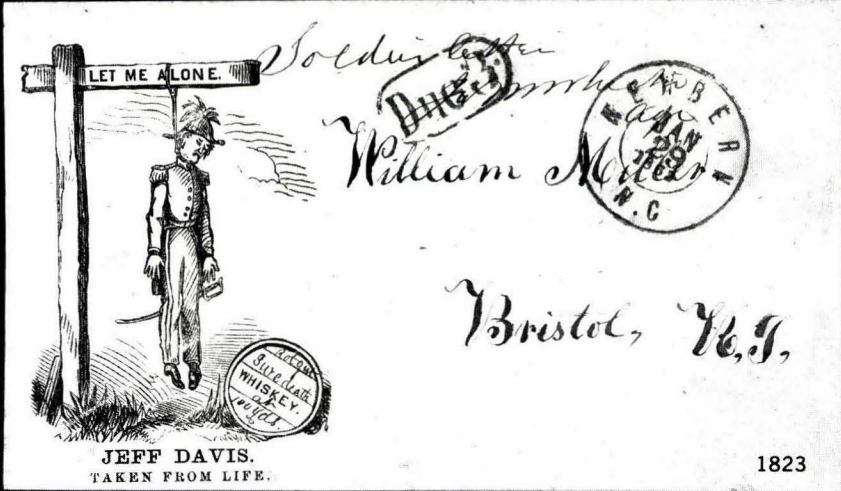 LET ME ALONE.
Soldier letter
Due 3.
NEWBERN
JAN
29
N.C
William Miller
Bristol, R.I,
Sure death
WHISKEY.
at
100 yds.
JEFF DAVIS.
TAKEN FROM LIFE.
1823